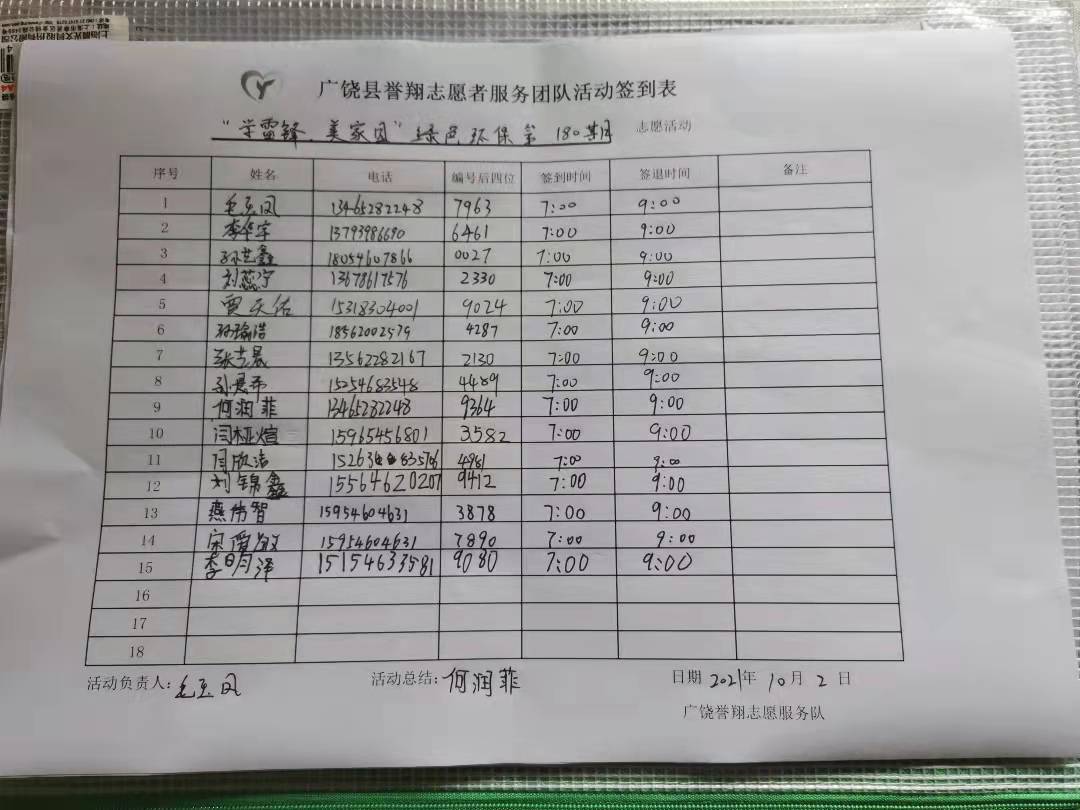 广饶县誉翔志愿者服务团队活动签到表
“学雷锋、美家园”绿色环保第180期 志愿活动
序号 姓名 电话 编号后四位 签到时间 签退时间 备注
1 13465282248 7963 7:00 9:00
2 李华宇 13793986690 6461 7:00 9:00
3 孙艺鑫 18054607866 0027 7:00 9:00
4 刘蕊宁 13678617576 2330 7:00 9:00
5 贾天佑 15318304001 9024 7:00 9:00
6 孙瑜浩 18562002579 4287 7:00 9:00
7 张艺晨 13562282167 2130 7:00 9:00
8 15254683548 4489 7:00 9:00
9 何润菲 13465282248 9364 7:00 9:00
10 闫桠煊 15965456801 3582 7:00 9:00
11 闫欣洁 4981 7:00 9:00
12 刘锦鑫 15564620207 9412 7:00 9:00
13 燕伟智 15954604631 3878 7:00 9:00
14 15954604631 7890 7:00 9:00
15 李明泽 15154633581 9080 7:00 9:00
16
17
18
活动负责人: 活动总结: 何润菲 日期 2021年10月2日
广饶誉翔志愿服务队